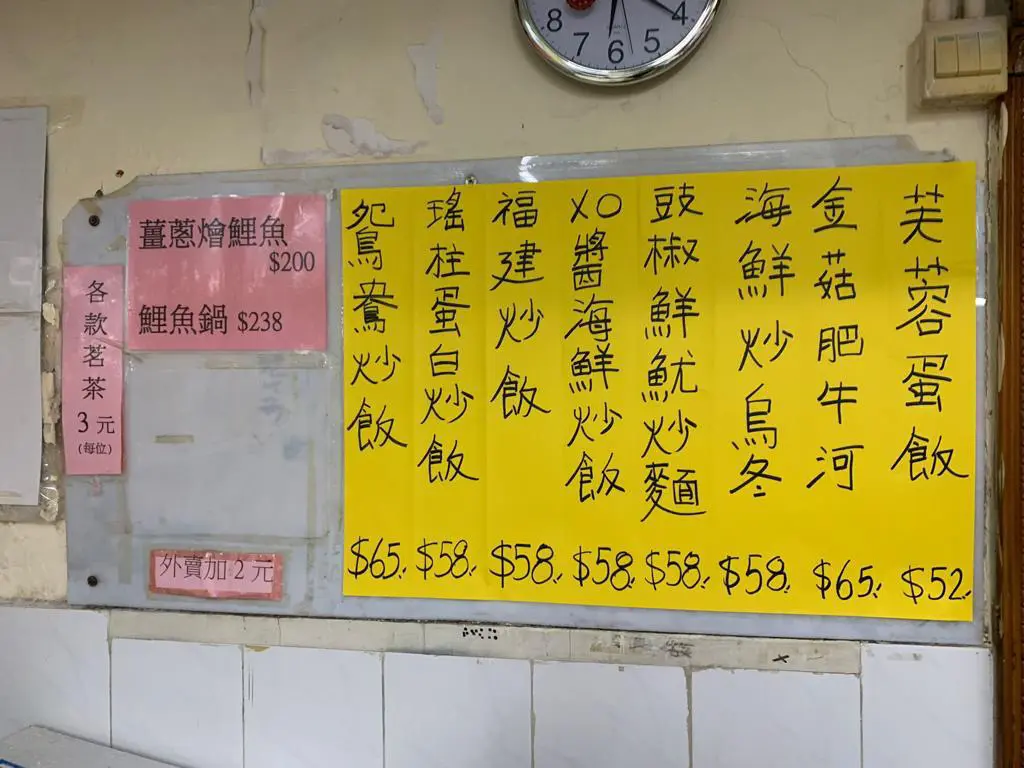 8 7 6 5 4
薑蔥燴鯉魚
$200
鯉魚鍋 $238
各款茗茶
3元
(每位)
外賣加2元
芙蓉蛋飯 $52.
金菇肥牛河 $65.
海鮮炒烏冬 $58.
豉椒鮮魷炒麵 $58.
XO醬海鮮炒飯 $58.
福建炒飯 $58.
瑤柱蛋白炒飯 $58.
鴛鴦炒飯 $65.